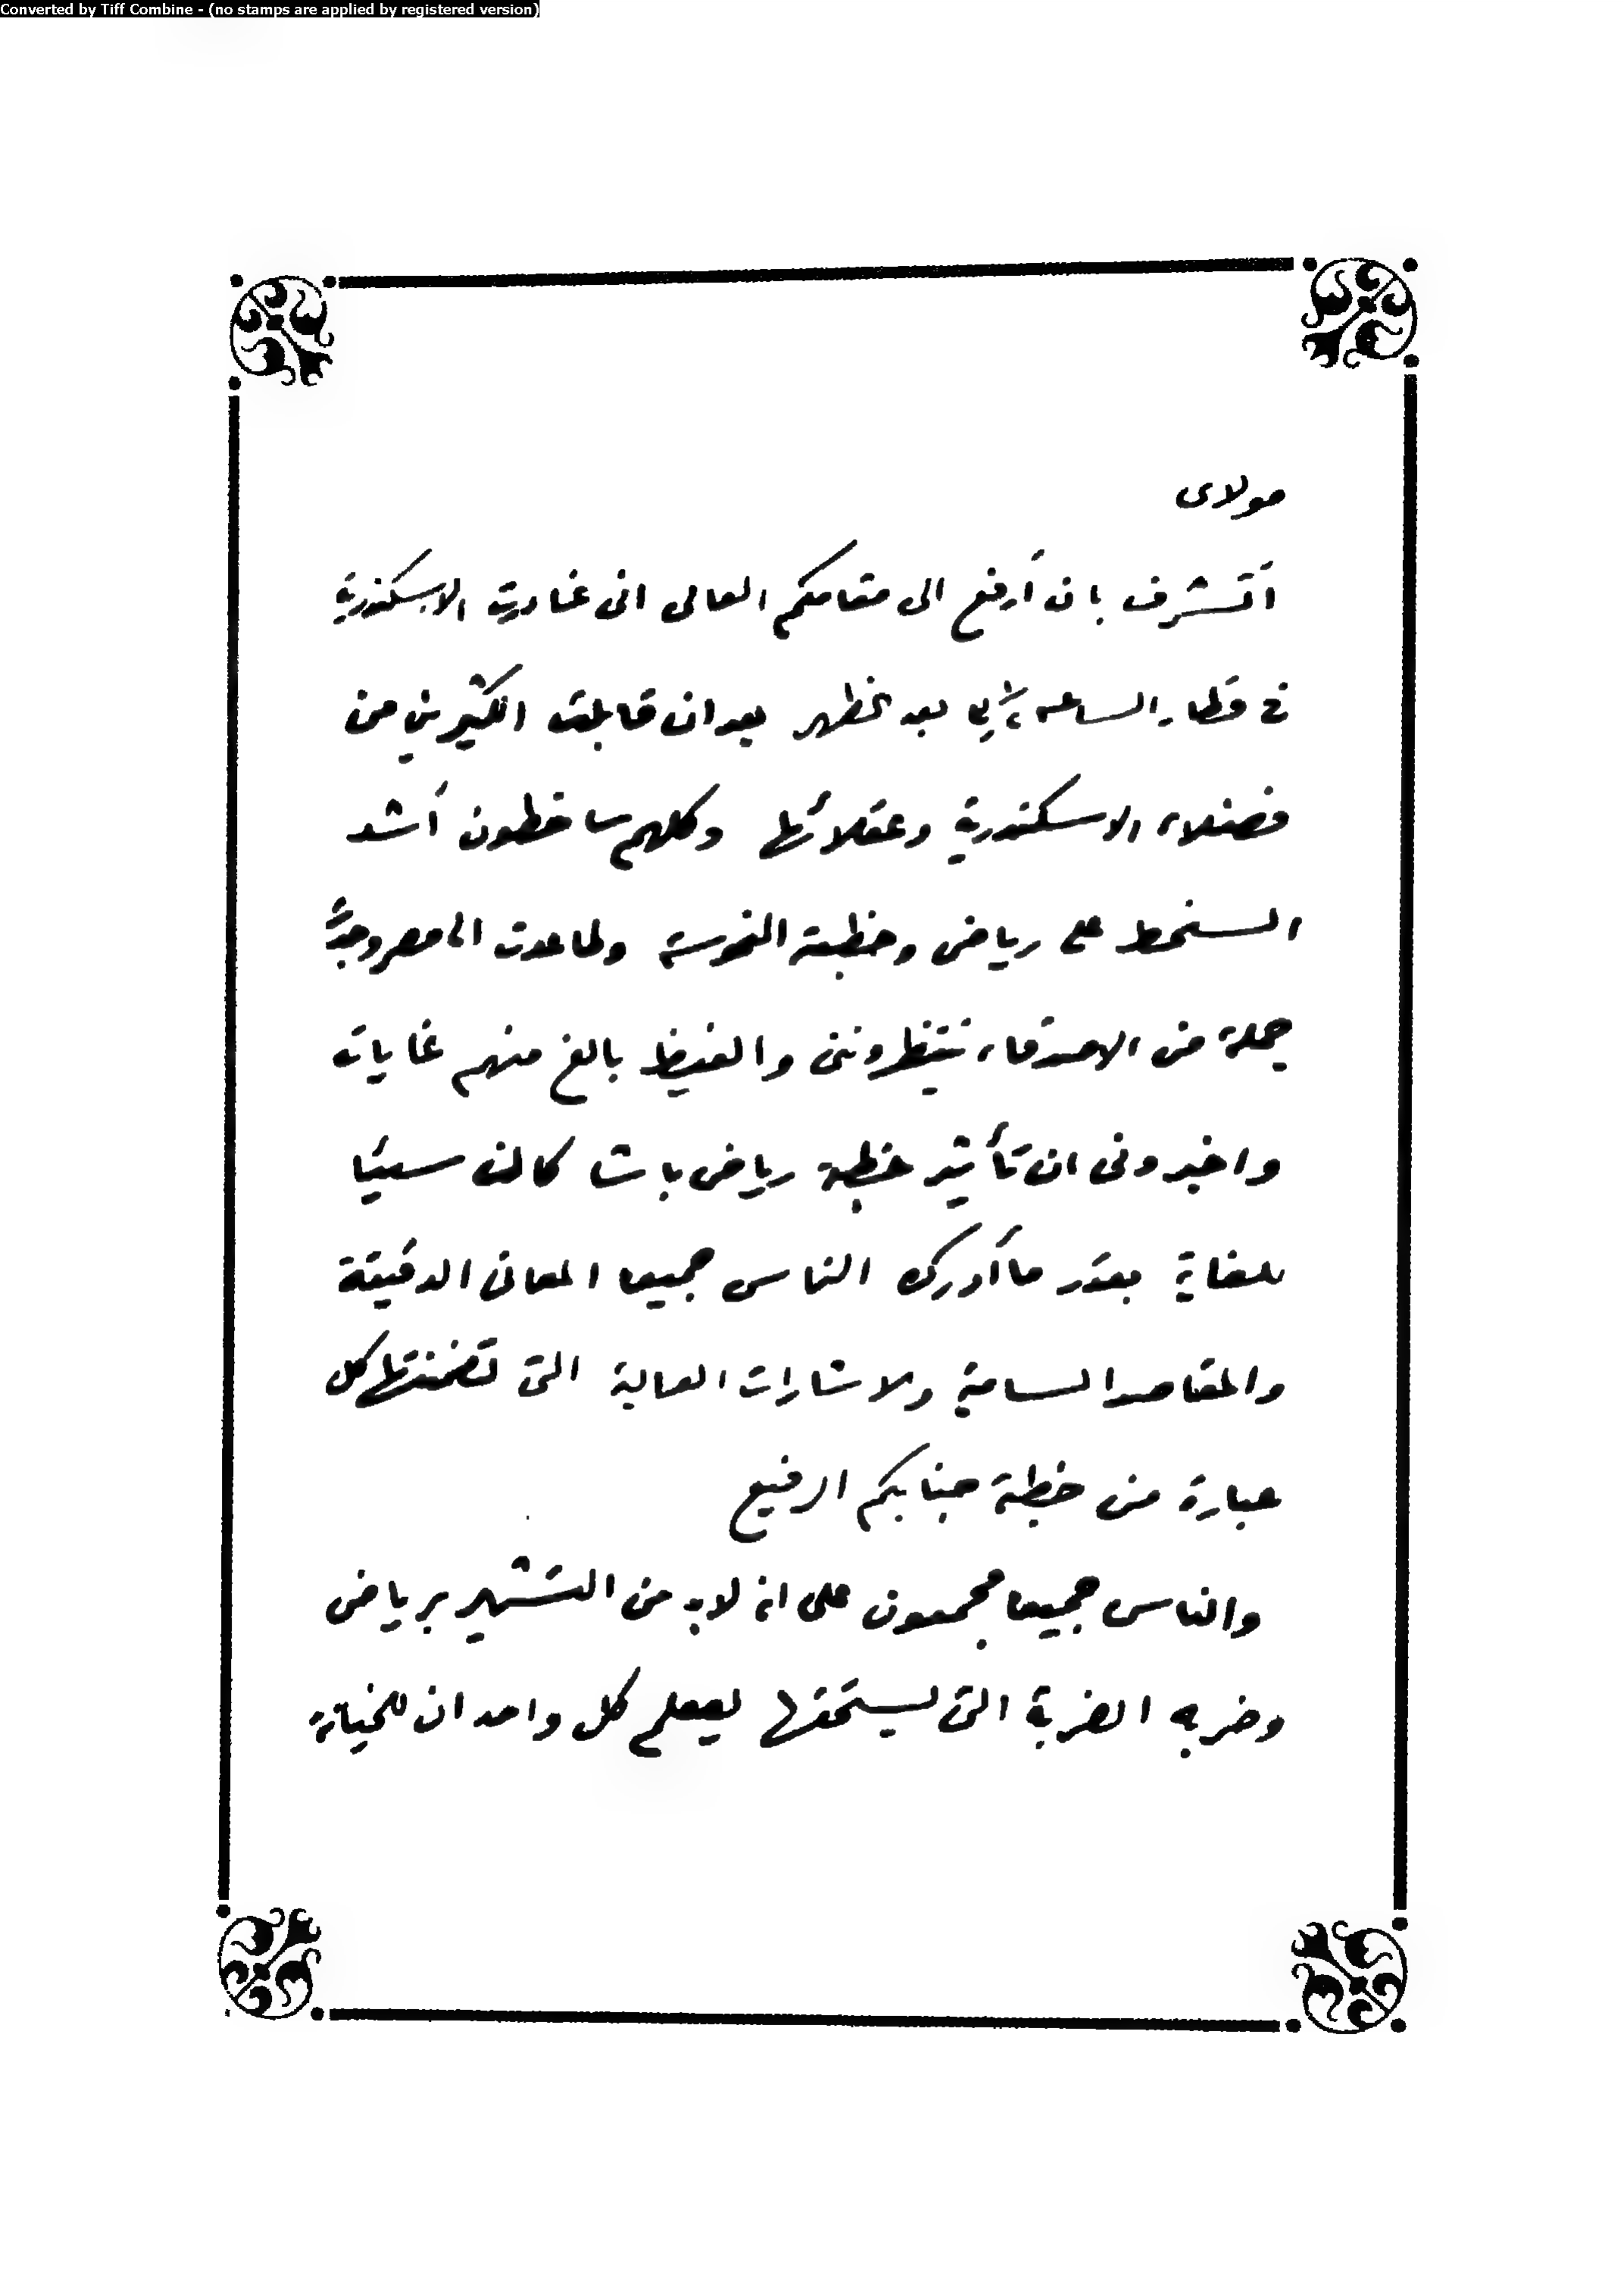 Converted by Tiff Combine - (no stamps are applied by registered version)
مولاى
أتشرف بان أرفع الى مقامكم العالى انى غادرت الاسكندرية
فى قطار الساعه بعد الظهر بعد ان قابلت الكثيرين من
فضلاء الاسكندرية وعقلائها وكلهم ساخطون أشد
السخط على رياض وخطبته ولما عدت الى مصر وجدتُ
جملة من الاصدقاء ينتظروننى والغيظ بالغ منهم غاياته
واخبرونى ان تأثير خطبة رياض باشا كان سيئا
للغاية بقدر ما أدرك الناس جميعا المعانى الدقيقة
والمقاصد السامية والاشارات العالية التى تضمنتها كل
عبارة من خطبة جنابكم الرفيع
والناس جميعا مجمعون على انه لابد من التشهير برياض
وضربه الضربة التى يستحقها ليعلم كل واحد ان للخيانة